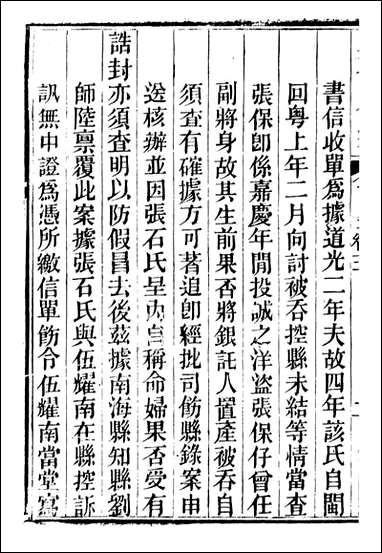 書信收單爲據道光二年夫故四年該氏自閩
回粤上年二月向討被吞控縣未結等情當查
張保卽係嘉慶年閒投誠之洋盜張保仔曾任
副將身故其生前果否將銀託人置產被吞自
須查有確據方可著追卽經批司飭縣錄案由
送核辦並因張石氏呈內自稱命婦果否受有
誥封亦須查明以防假冒去後茲據南海縣知縣劉
師陸禀覆此案據張石氏與伍耀南在縣控訴
訊無中證爲憑所繳信單飭令伍耀南當堂寫